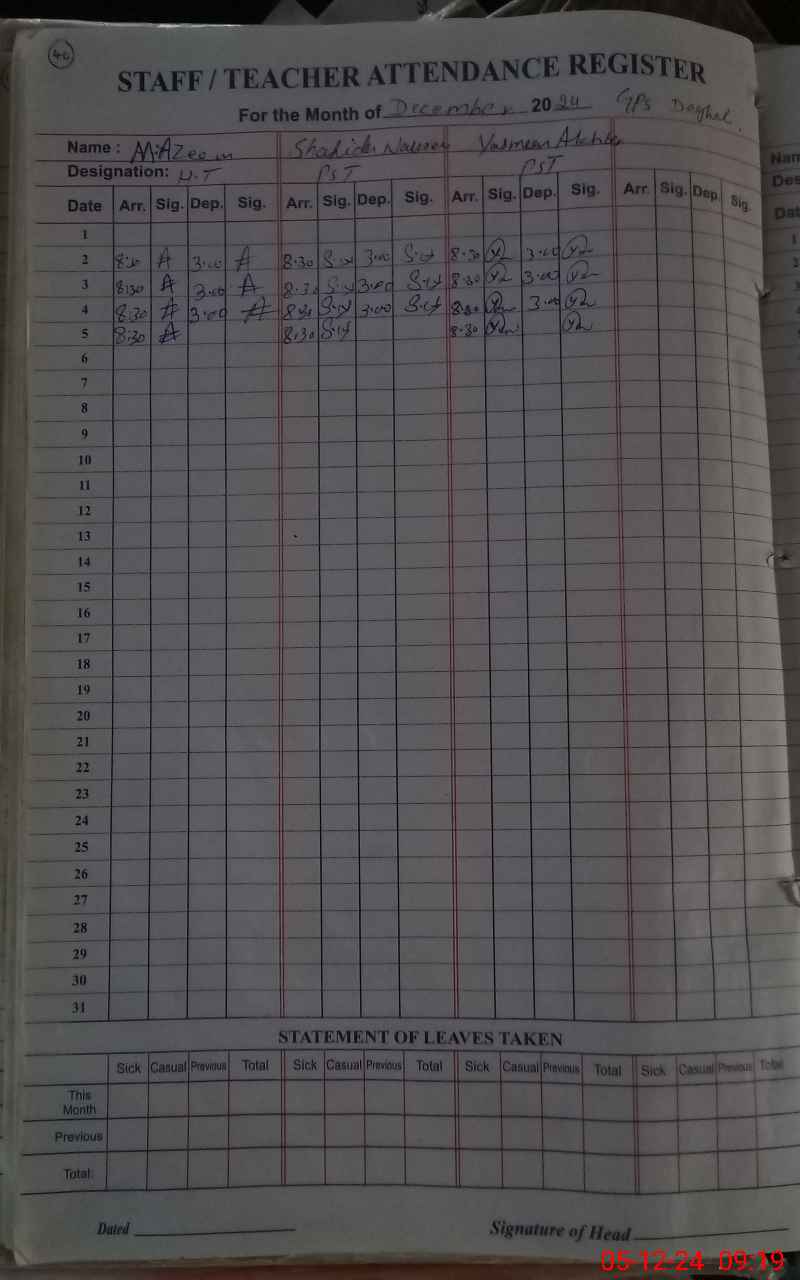 46
STAFF / TEACHER ATTENDANCE REGISTER
For the Month of December 2024 GPS
Name : M.Azeem Shahida Yasmeen Akhter
Designation: PST PST
Date Arr. Sig. Dep. Sig. Arr. Sig. Dep. Sig. Arr. Sig. Dep. Sig. Arr. Sig. Dep. Sig.
1
2 8:30 A 3:00 A 8.30 3:00 8.30 3:00
3 8:30 A 3:00 A 8.30 3:00 8.30 3:00
4 8:30 A 3:00 A 8.30 3:00 8.30 3:00
5 8:30 A 8.30 8.30
6
7
8
9
10
11
12
13
14
15
16
17
18
19
20
21
22
23
24
25
26
27
28
29
30
31
STATEMENT OF LEAVES TAKEN
Sick Casual Previous Total Sick Casual Previous Total Sick Casual Previous Total Sick Casual Previous Total
This
Month
Previous
Total:
Dated Signature of Head
05-12-24 09:19